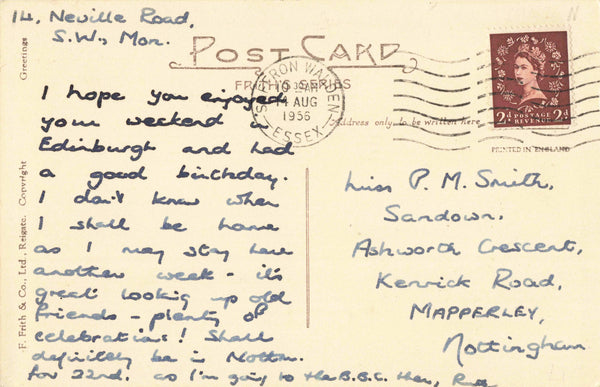 14, Neville Road,
S.W., Mon.
POST CARD
FRITH'S SERIES
Greetings
F. Frith & Co., Ltd., Reigate. Copyright
SAFFRON WALDEN
AUG
1956
ESSEX
2d POSTAGE REVENUE 2d
Address only to be written here
PRINTED IN ENGLAND
I hope you enjoyed
your weekend in
Edinburgh and had
a good birthday.
I don't know when
I shall be home
as I may stay here
another week - it's
great looking up old
friends - plenty of
celebrations! Shall
definitely be in Nottm.
for 22nd. as I'm going to the B.B.C. then,
Miss P. M. Smith,
Sandown,
Ashworth Crescent,
Kenrick Road,
MAPPERLEY,
Nottingham